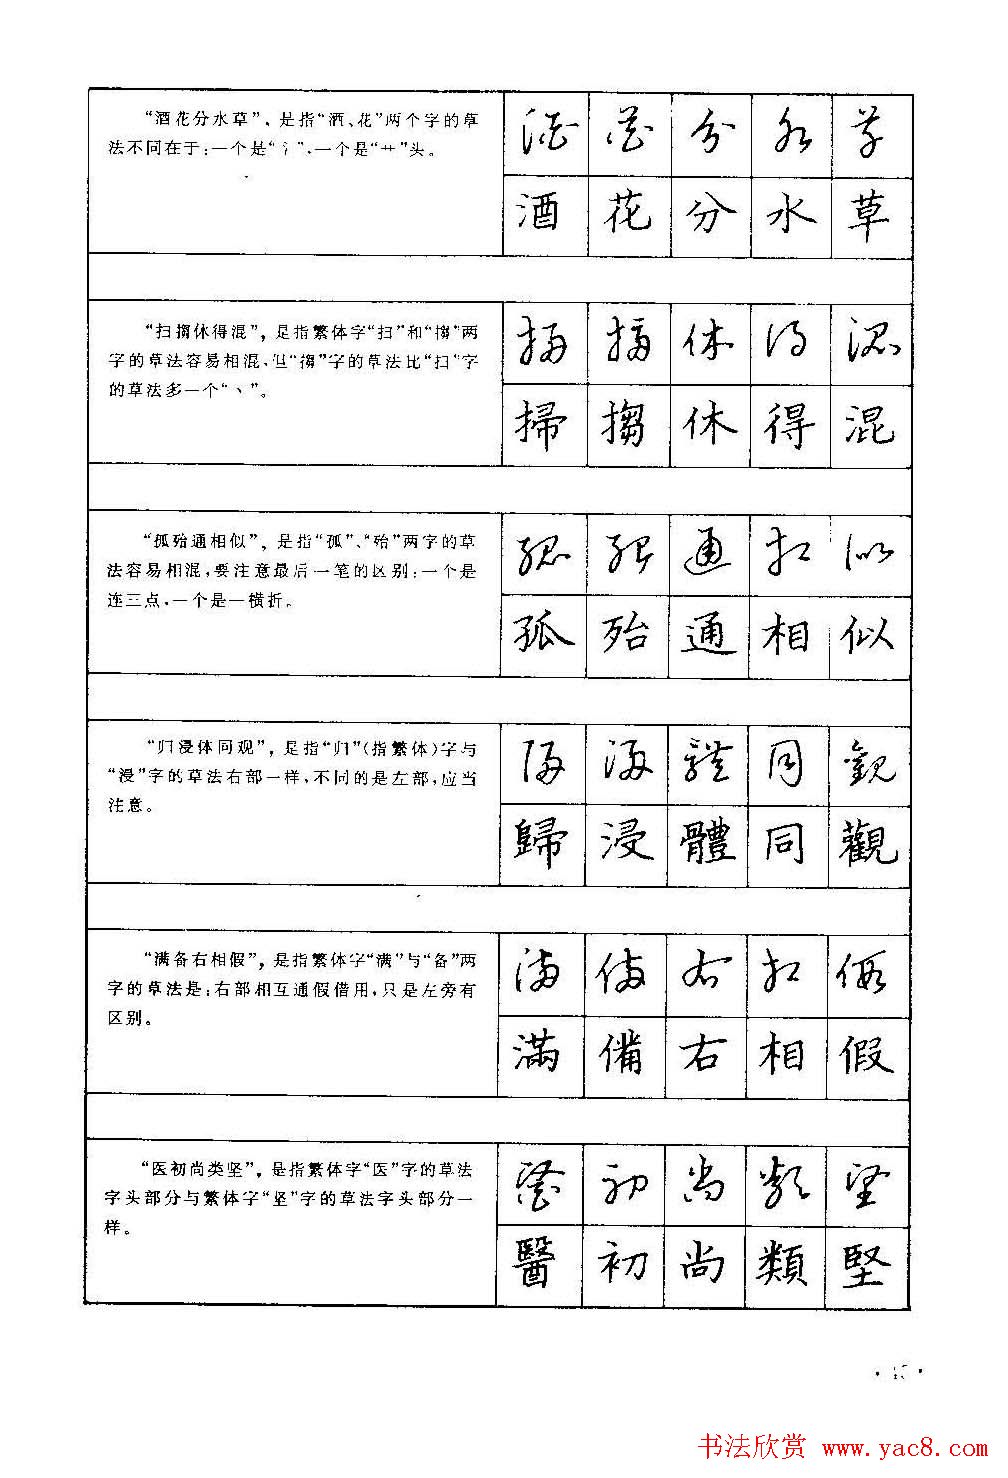 “酒花分水草”，是指“酒、花”两个字的草
法不同在于：一个是“氵”，一个是“艹”头。
酒 花 分 水 草
酒 花 分 水 草
“扫搊休得混”，是指繁体字“扫”和“搊”两
字的草法容易相混，但“搊”字的草法比“扫”字
的草法多一个“丶”。
掃 搊 休 得 混
掃 搊 休 得 混
“孤殆通相似”，是指“孤”、“殆”两字的草
法容易相混，要注意最后一笔的区别：一个是
连三点，一个是一横折。
孤 殆 通 相 似
孤 殆 通 相 似
“归浸体同观”，是指“归”(指繁体)字与
“浸”字的草法右部一样，不同的是左部，应当
注意。
歸 浸 體 同 觀
歸 浸 體 同 觀
“满备右相假”，是指繁体字“满”与“备”两
字的草法是：右部相互通假借用，只是左旁有
区别。
滿 備 右 相 假
滿 備 右 相 假
“医初尚类坚”，是指繁体字“医”字的草法
字头部分与繁体字“坚”字的草法字头部分一
样。
醫 初 尚 類 堅
醫 初 尚 類 堅
书法欣赏 www.yac8.com